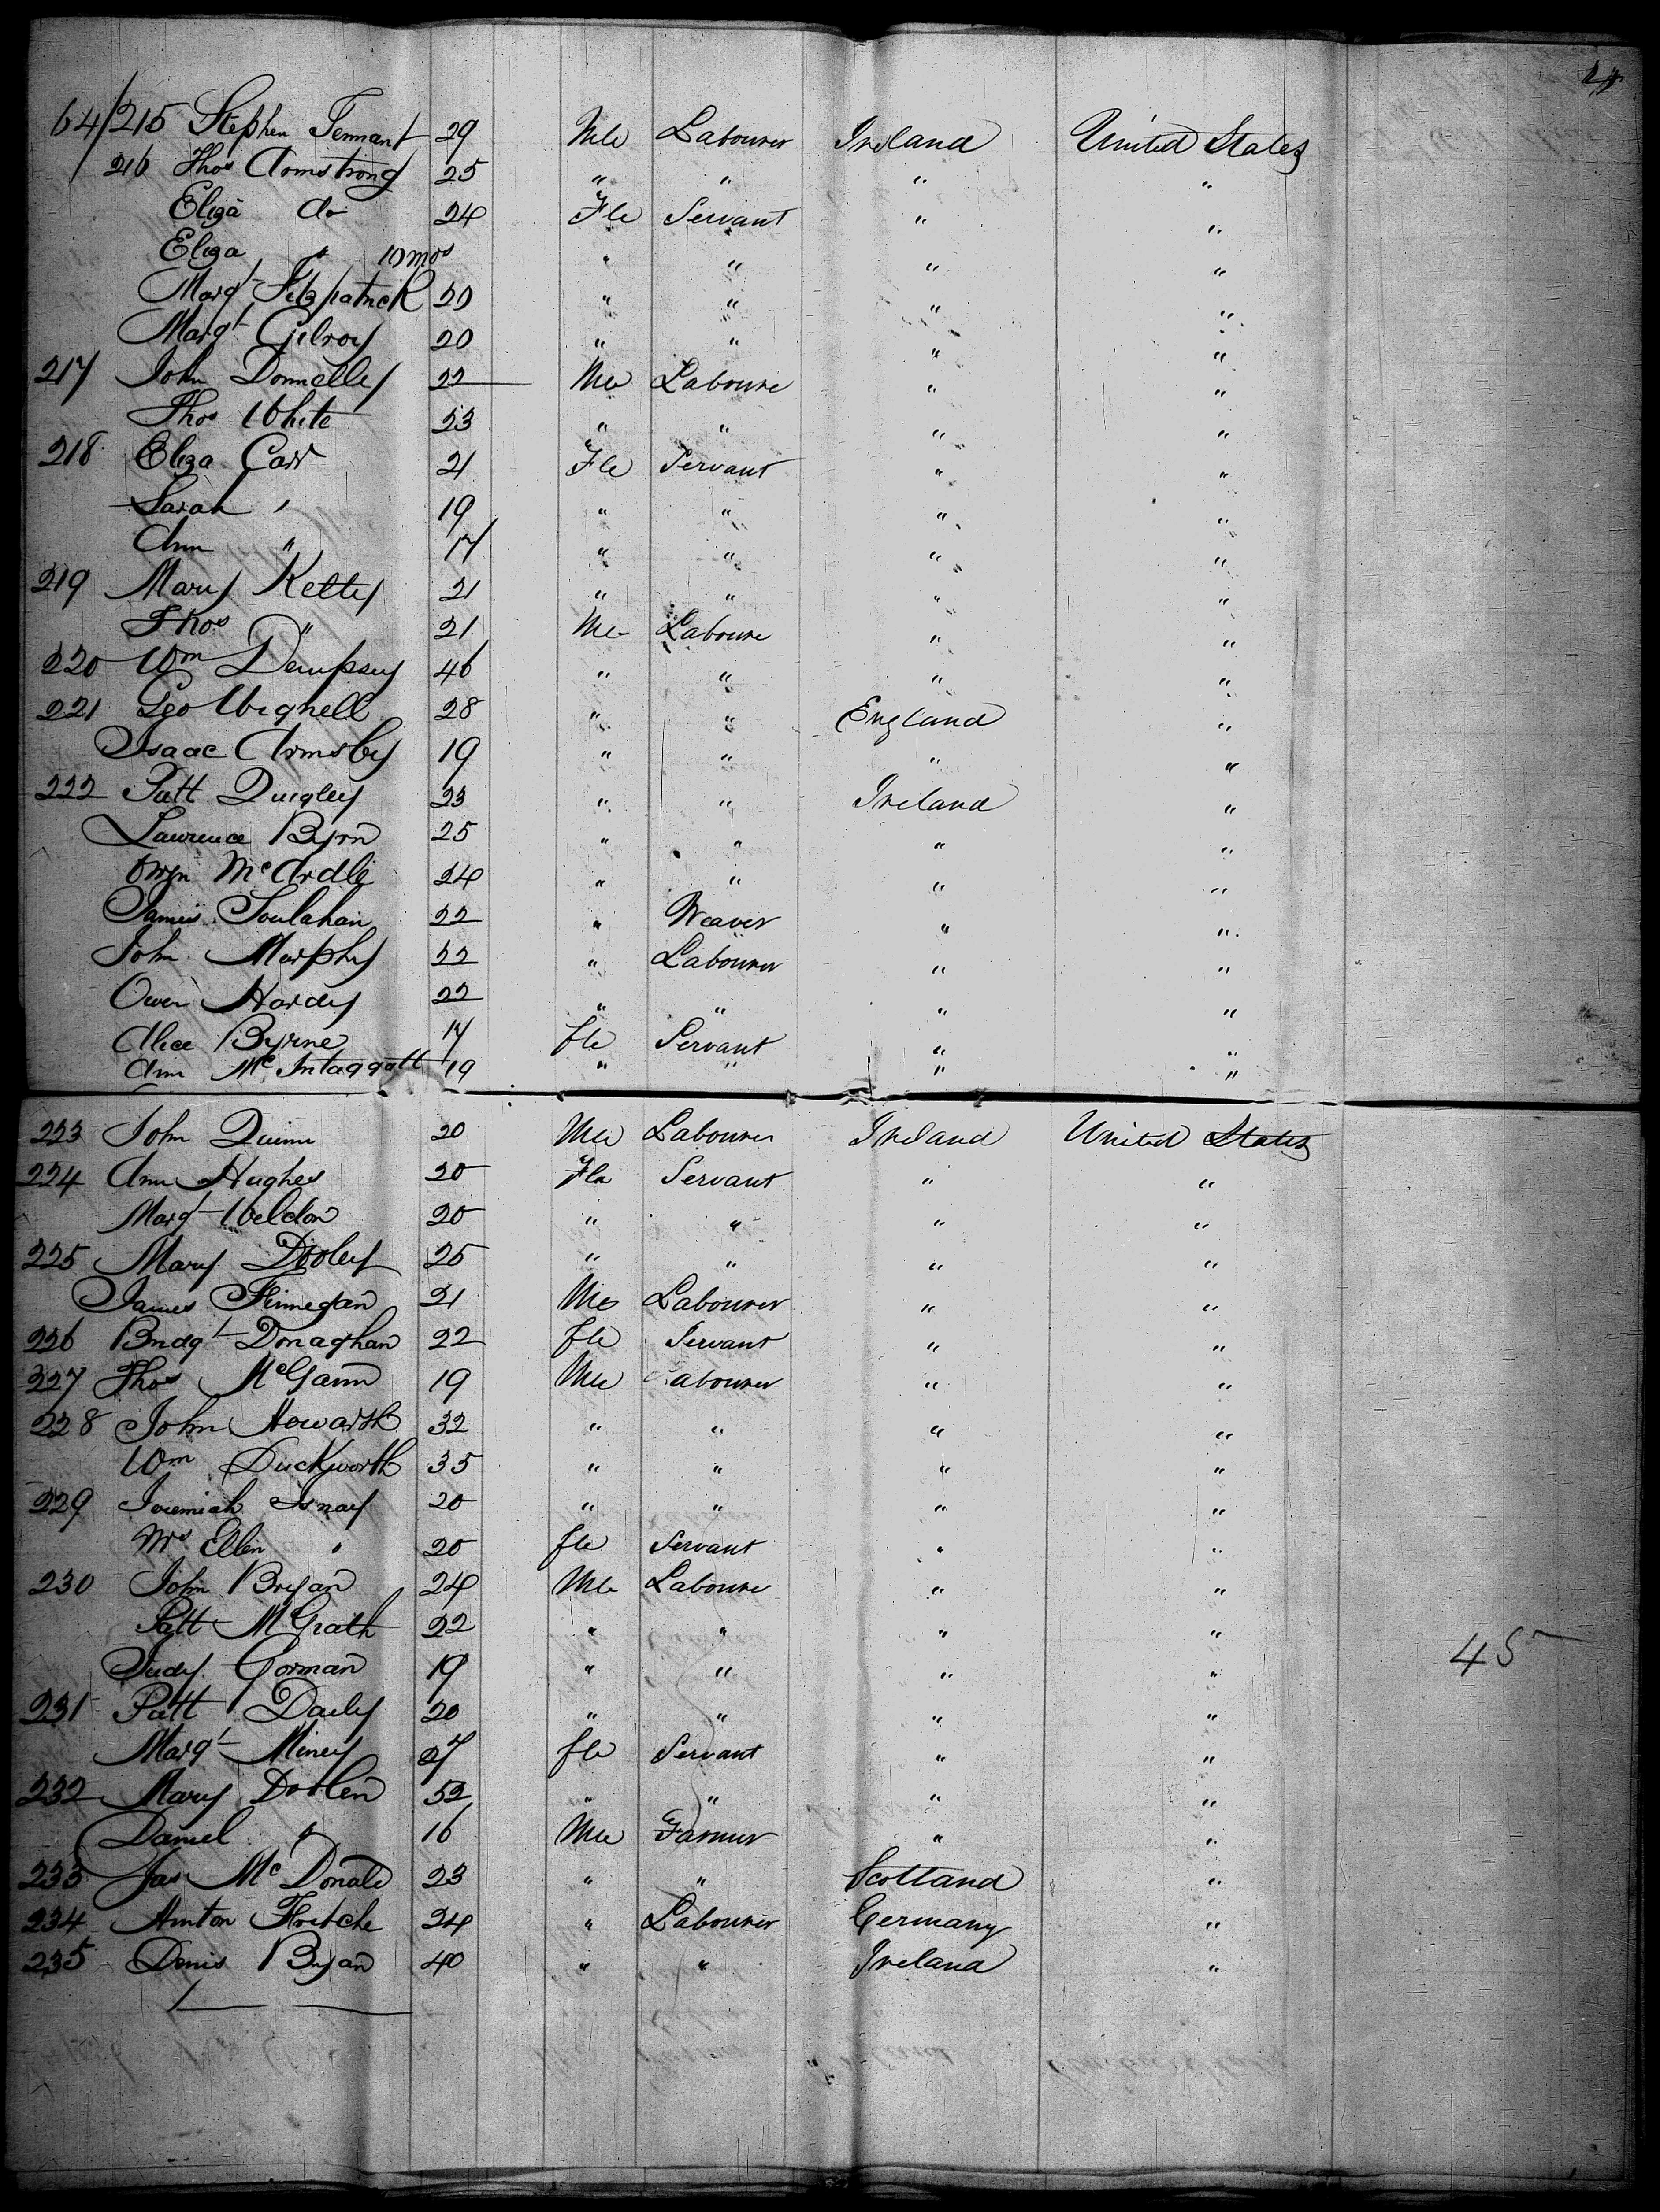 24
64/215 Stephen Tennant 29 Mle Labourer Ireland United States
216 Thos Armstrong 25 " " " "
Eliza do 24 Fle Servant " "
Eliza " 10 mos " " " "
Margt Fitzpatrick 20 " " " "
Margt Gilroy 20 " " " "
217 John Donnelly 22 Mle Laboure " "
Thos White 23 " " " "
218 Eliza Carr 21 Fle Servant " "
Sarah " 19 " " " "
Ann " 17 " " " "
219 Mary Kelty 21 " " " "
Thos " 21 Mle Laboure " "
220 Wm Dempsey 46 " " " "
221 Geo Wignell 28 " " England "
Isaac Armsby 19 " " " "
222 Patt Quigley 23 " " Ireland "
Lawrence Byrn 25 " " " "
Owen McArdle 24 " " " "
James Soulahan 22 " Weaver " "
John Murphy 22 " Labourer " "
Owen Hardy 22 " " " "
Alice Byrne 17 fle Servant " "
Ann McIntaggatt 19 " " " "
223 John Quinn 20 Mle Labourer Ireland United States
224 Ann Hughes 20 Fle Servant " "
Margt Weldon 20 " " " "
225 Mary Dooley 25 " " " "
James Finnegan 21 Mle Labourer " "
226 Bridgt Donaghan 22 fle Servant " "
227 Thos McGann 19 Mle Labourer " "
228 John Howarth 32 " " " "
Wm Duckworth 35 " " " "
229 Jeremiah Isnay 20 " " " "
Mrs Ellen " 20 fle Servant " "
230 John Bryan 24 Mle Laboure " "
Patt McGrath 22 " " " "
Judy Gorman 19 " " " "
45
231 Patt Daily 20 " " " "
Margt Miney 27 fle Servant " "
232 Mary Doolen 52 " " " "
Daniel " 16 Mle Farmer " "
233 Jas McDonald 23 " " Scotland "
234 Anton Fritche 24 " Labourer Germany "
235 Denis Bryan 40 " " Ireland "